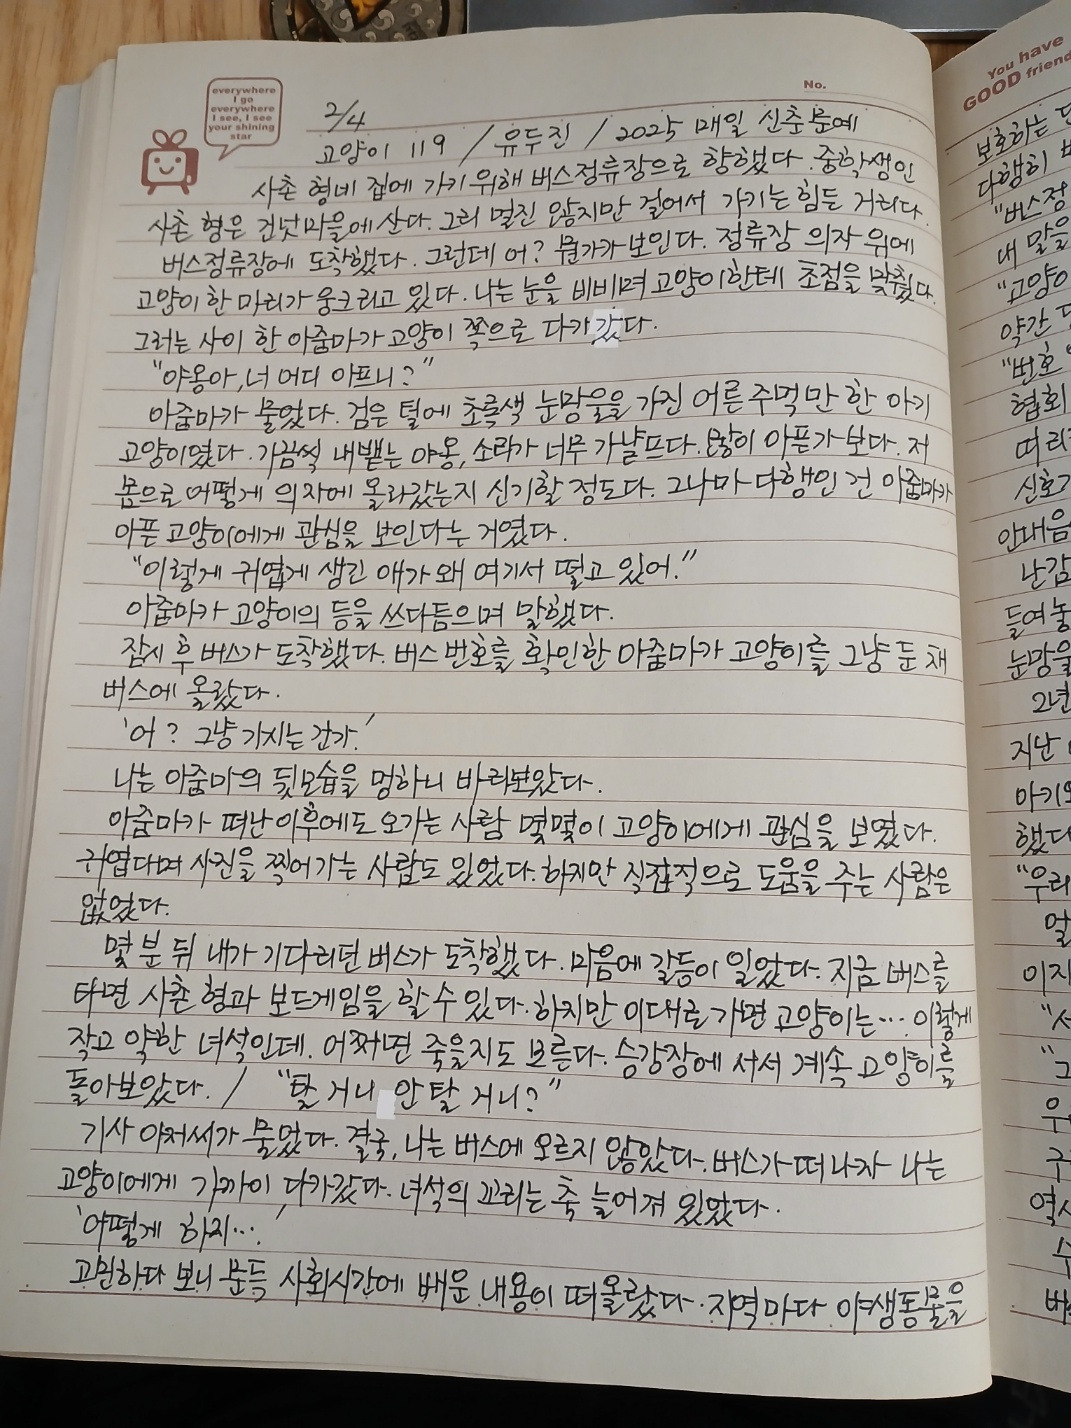 everywhere
I go
everywhere
I see, I see
your shining
star
No.
You have
GOOD friend
2/4
고양이 119 / 유두진 / 2025 매일 신춘문예
사촌 형네 집에 가기 위해 버스정류장으로 향했다. 중학생인
사촌 형은 건넛마을에 산다. 그리 멀진 않지만 걸어서 가기는 힘든 거리다.
버스정류장에 도착했다. 그런데 어? 뭔가가 보인다. 정류장 의자 위에
고양이 한 마리가 웅크리고 있다. 나는 눈을 비비며 고양이한테 초점을 맞췄다.
그러는 사이 한 아줌마가 고양이 쪽으로 다가갔다.
"야옹아, 너 어디 아프니?"
아줌마가 물었다. 검은 털에 초록색 눈망울을 가진 어른 주먹만 한 아기
고양이였다. 가끔씩 내뱉는 야옹, 소리가 너무 가냘프다. 많이 아픈가 보다. 저
몸으로 어떻게 의자에 올라갔는지 신기할 정도다. 그나마 다행인 건 아줌마가
아픈 고양이에게 관심을 보인다는 거였다.
"이렇게 귀엽게 생긴 애가 왜 여기서 떨고 있어."
아줌마가 고양이의 등을 쓰다듬으며 말했다.
잠시 후 버스가 도착했다. 버스 번호를 확인한 아줌마가 고양이를 그냥 둔 채
버스에 올랐다.
'어? 그냥 가시는 건가.'
나는 아줌마의 뒷모습을 멍하니 바라보았다.
아줌마가 떠난 이후에도 오가는 사람 몇몇이 고양이에게 관심을 보였다.
귀엽다며 사진을 찍어가는 사람도 있었다. 하지만 직접적으로 도움을 주는 사람은
없었다.
몇 분 뒤 내가 기다리던 버스가 도착했다. 마음에 갈등이 일었다. 지금 버스를
타면 사촌 형과 보드게임을 할 수 있다. 하지만 이대로 가면 고양이는… 이렇게
작고 약한 녀석인데. 어쩌면 죽을지도 모른다. 승강장에 서서 계속 고양이를
돌아보았다. / "탈 거니 안 탈 거니?"
기사 아저씨가 물었다. 결국, 나는 버스에 오르지 않았다. 버스가 떠나자 나는
고양이에게 가까이 다가갔다. 녀석의 꼬리는 축 늘어져 있었다.
'어떻게 하지….'
고민하다 보니 문득 사회시간에 배운 내용이 떠올랐다. 지역마다 야생동물을
보호하는
다행히
"버스정
내 말을
"고양이
약간
"번호
협회
신호가
안내음
난감
들여놓
눈망울
2년
지난
했다
"우리